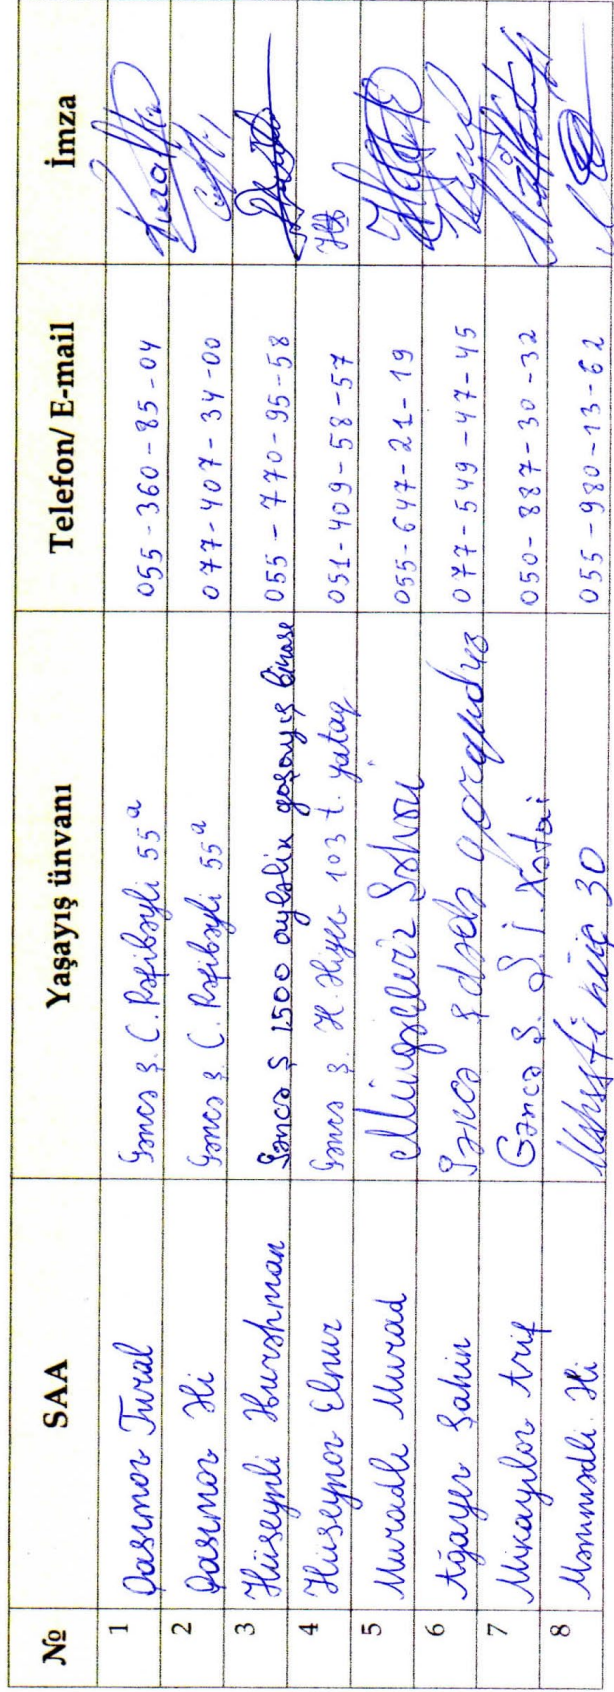 № SAA Yaşayış ünvanı Telefon/ E-mail İmza
1 Qasımov Tural Gəncə ş. C. Rəfibəyli 55ᵃ 055-360-85-04
2 Qasımov Əli Gəncə ş. C. Rəfibəyli 55ᵃ 077-407-34-00
3 Hüseynli Gəncə ş 1500 yaşayış binası 055-770-95-58
4 Hüseynov Elnur Gəncə ş. H. 103 t. yataq 051-409-58-57
5 Muradlı Murad Mingəçevir Şəhəri 055-647-21-19
6 Ağayev Şahin Gəncə ş dədə qorqud 077-549-47-45
7 Mikayılov Arif Gəncə ş. Ş. İ. Xətai 050-887-30-32
8 Məmmədli Əli 30 055-980-13-62